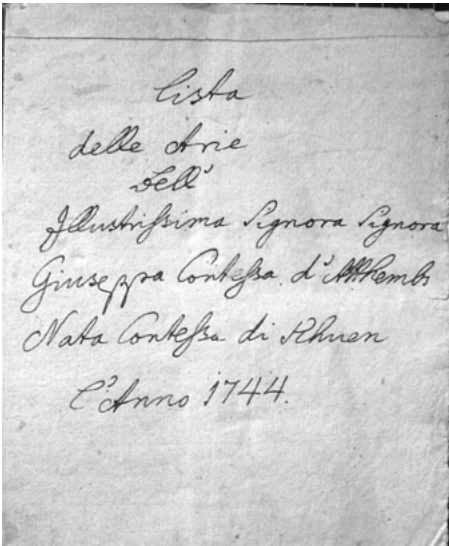 Lista
delle Arie
Dell'
Illustrissima Signora Signora
Giuseppa Contessa d'Atthembs
Nata Contessa di Khuen
L'Anno 1744.